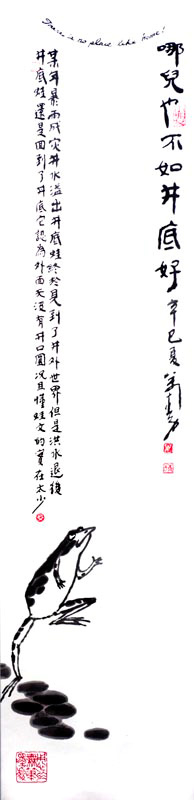 There is no place like home!
哪兒也不如井底好 辛巳夏
某年暴雨成灾井水溢出井底蛙終於見到了井外世界但是洪水退後
井底蛙還是回到了井底它認為外面天没有井口圓况且懂蛙文的實在太少